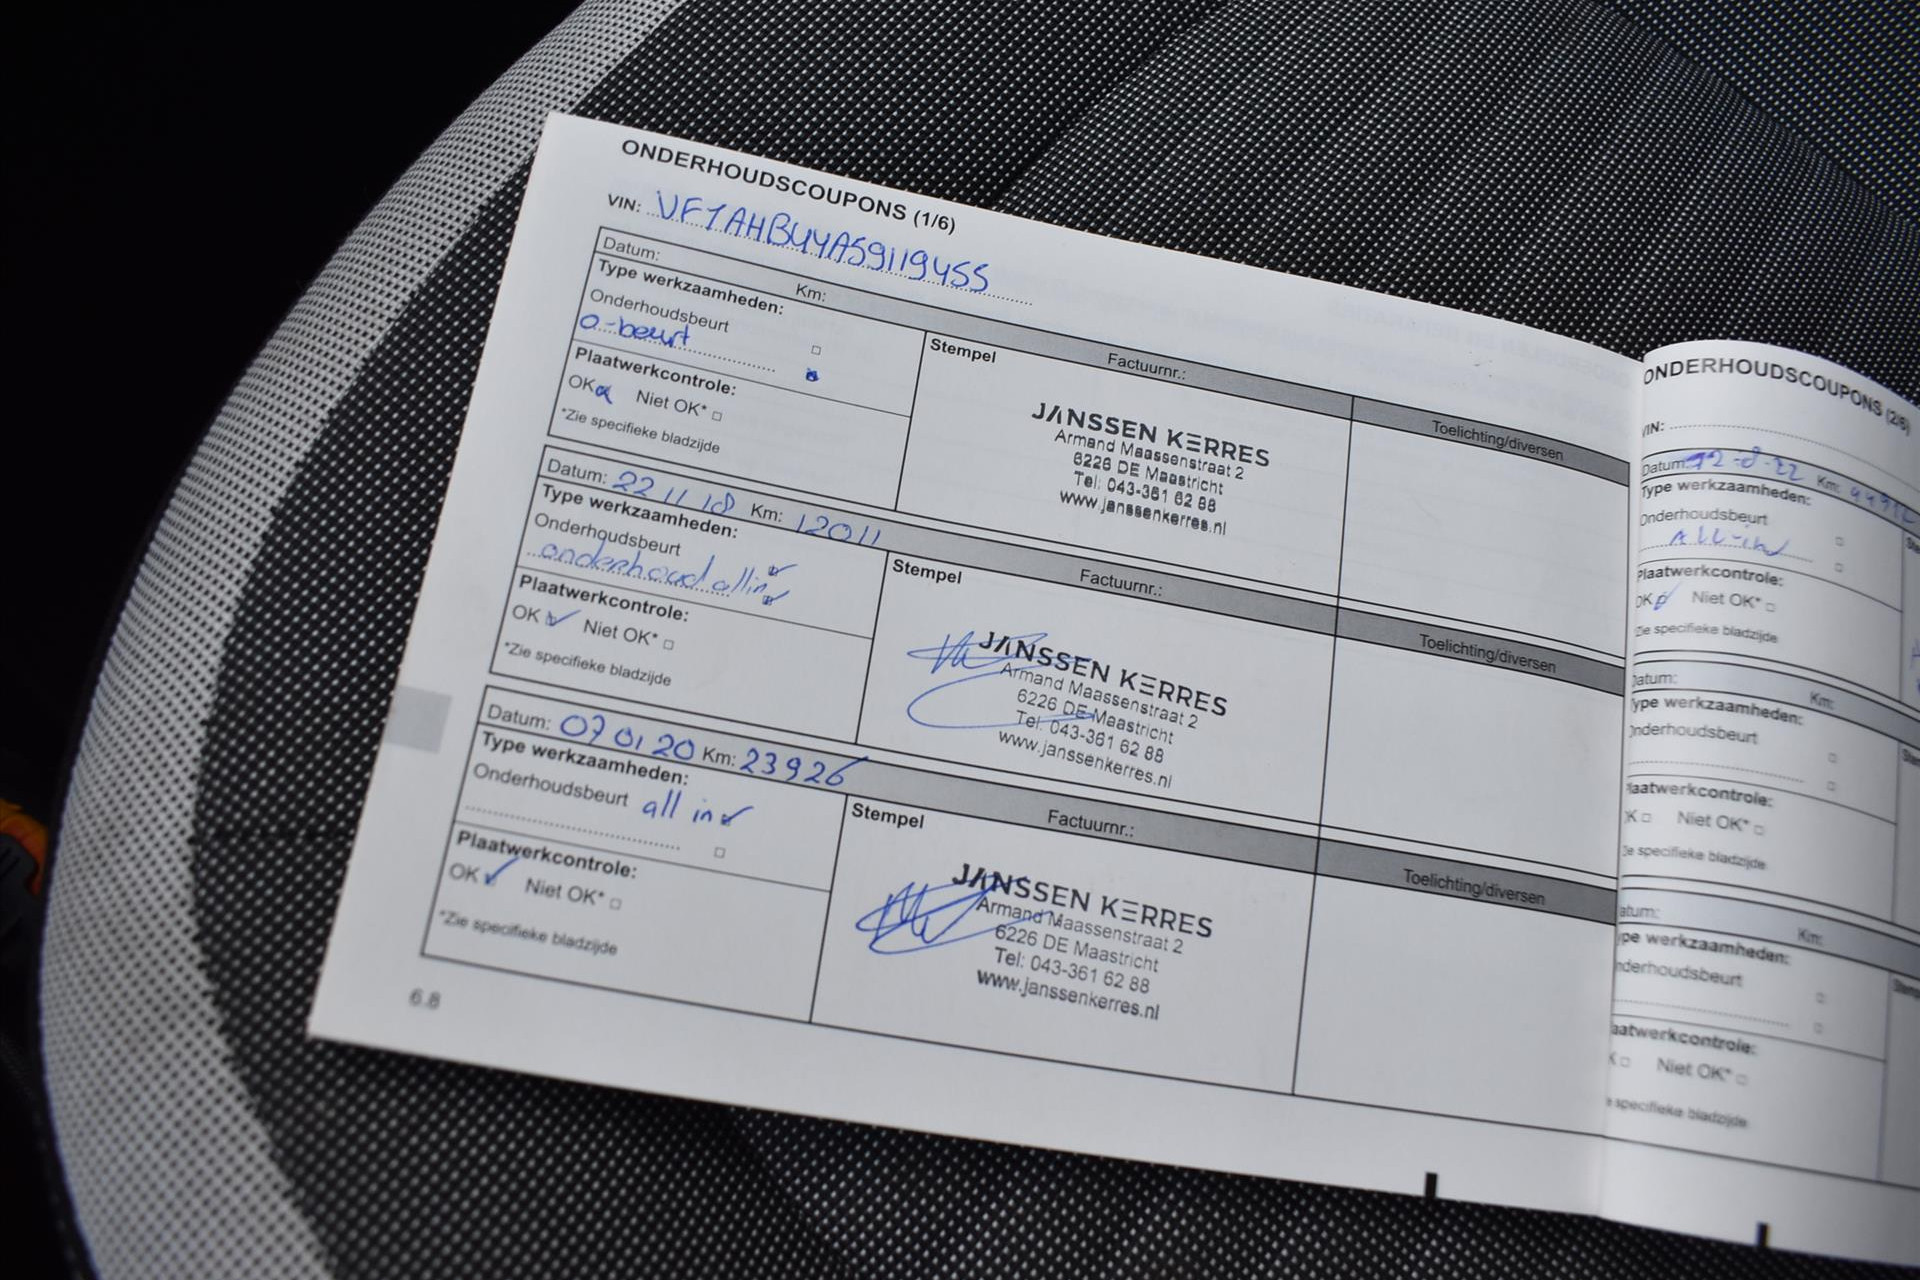 ONDERHOUDSCOUPONS (1/6)
VIN: VF1AHBU4A59119455
Datum: Km:
Type werkzaamheden:
Onderhoudsbeurt
0-beurt
Plaatwerkcontrole:
OK Niet OK*
*Zie specifieke bladzijde
Stempel
Factuurnr.:
Toelichting/diversen
JANSSEN KERRES
Armand Maassenstraat 2
6226 DE Maastricht
Tel: 043-361 62 88
www.janssenkerres.nl
Datum: 22 11 18 Km: 12011
Type werkzaamheden:
Onderhoudsbeurt
onderhoud allin
Plaatwerkcontrole:
OK Niet OK*
*Zie specifieke bladzijde
Stempel
Factuurnr.:
Toelichting/diversen
JANSSEN KERRES
Armand Maassenstraat 2
6226 DE Maastricht
Tel: 043-361 62 88
www.janssenkerres.nl
Datum: 07 01 20 Km: 23926
Type werkzaamheden:
Onderhoudsbeurt all in
Plaatwerkcontrole:
OK Niet OK*
*Zie specifieke bladzijde
Stempel
Factuurnr.:
Toelichting/diversen
JANSSEN KERRES
Armand Maassenstraat 2
6226 DE Maastricht
Tel: 043-361 62 88
www.janssenkerres.nl
6.8
ONDERHOUDSCOUPONS (2/6)
VIN:
Datum: Km:
Type werkzaamheden:
Onderhoudsbeurt
All-in
Plaatwerkcontrole:
OK Niet OK*
Zie specifieke bladzijde
Datum: Km:
Type werkzaamheden:
Onderhoudsbeurt
Plaatwerkcontrole:
OK Niet OK*
Zie specifieke bladzijde
atum: Km:
ype werkzaamheden:
nderhoudsbeurt
aatwerkcontrole:
K Niet OK*
specifieke bladzijde